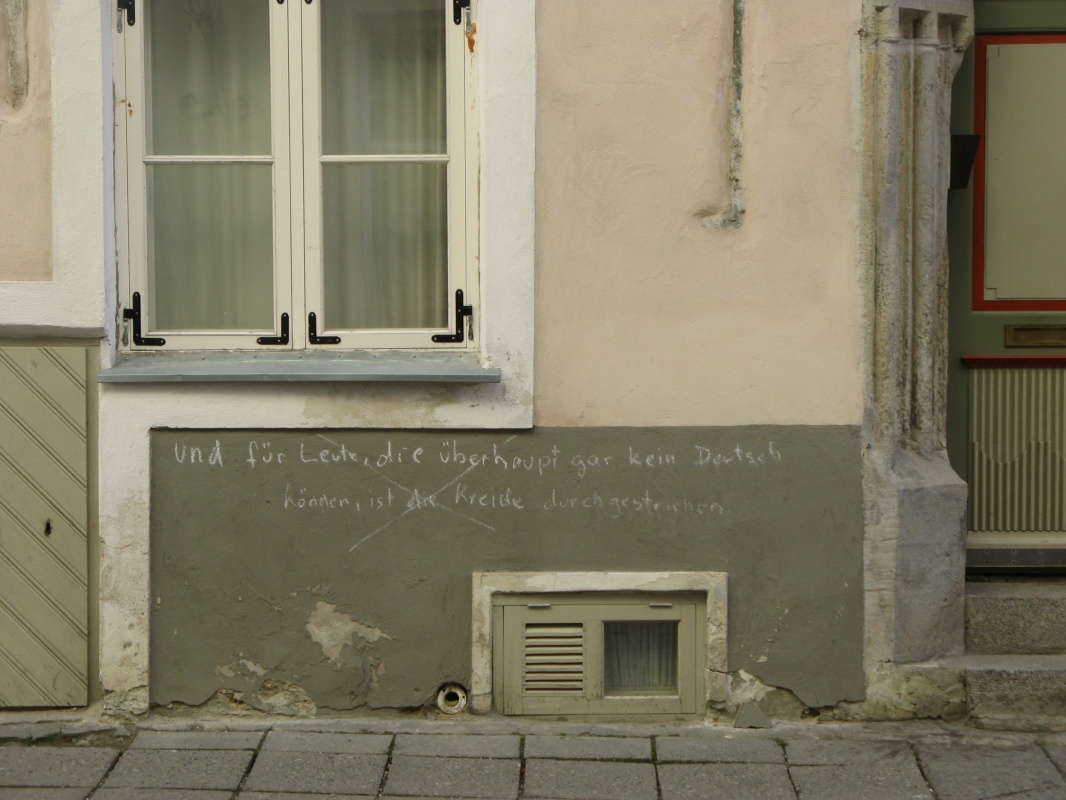 und für Leute, die überhaupt gar kein Deutsch
können, ist die Kreide durchgestrichen